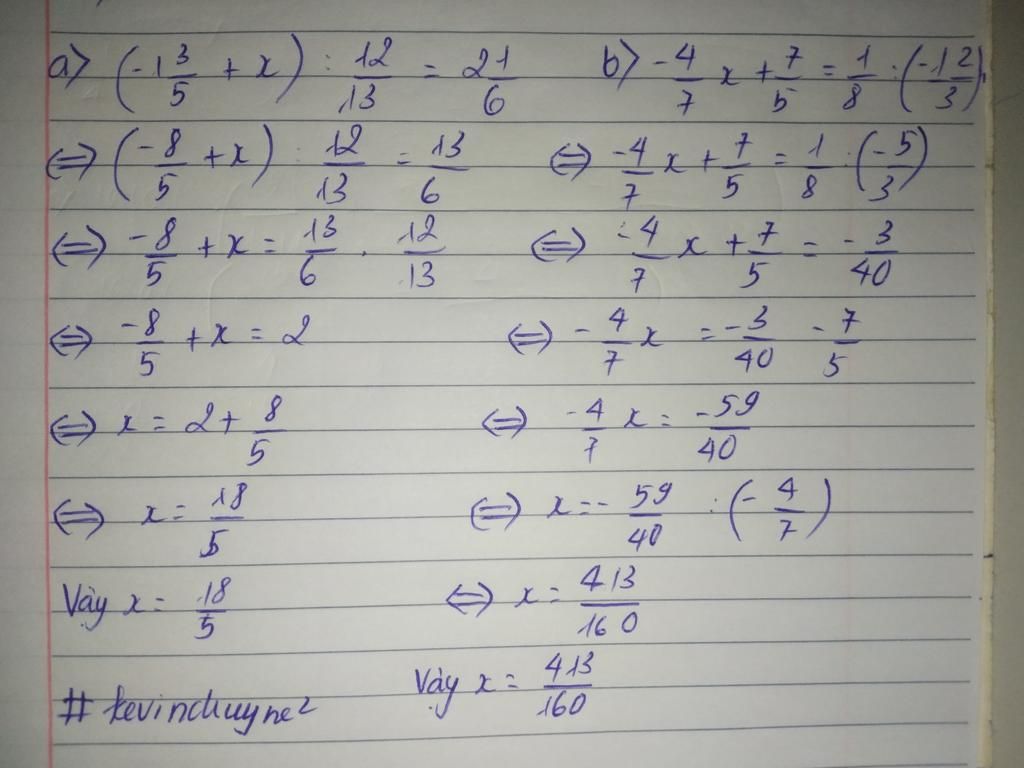 a) (-1 3/5 + x) : 12/13 = 2 1/6
⇔ (-8/5 + x) : 12/13 = 13/6
⇔ -8/5 + x = 13/6 . 12/13
⇔ -8/5 + x = 2
⇔ x = 2 + 8/5
⇔ x = 18/5
Vậy x = 18/5
b) -4/7 x + 7/5 = 1/8 : (-1 2/3).
⇔ -4/7 x + 7/5 = 1/8 : (-5/3)
⇔ -4/7 x + 7/5 = -3/40
⇔ -4/7 x = -3/40 - 7/5
⇔ -4/7 x = -59/40
⇔ x = -59/40 : (-4/7)
⇔ x = 413/160
Vậy x = 413/160